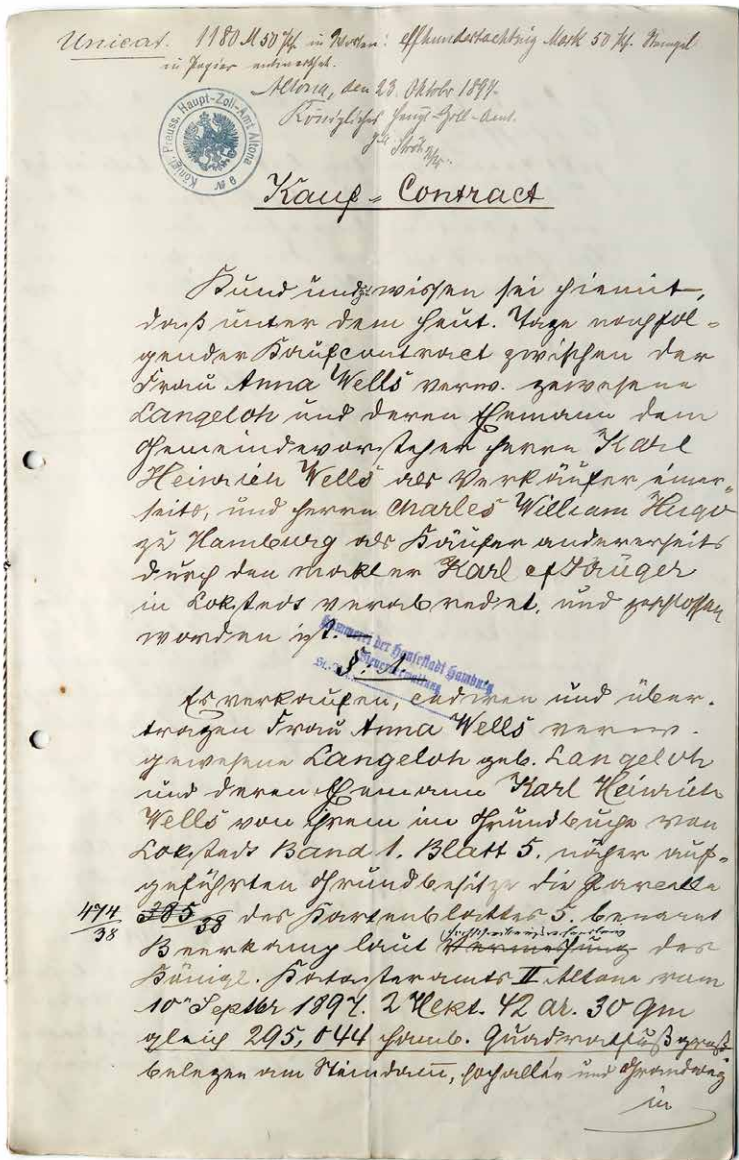 Unicat. 1180 M 50 Pf in Worten: Elfhundertachtzig Mark 50 Pf. Stempel
in Papier entwerthet.
Altona, den 23. Oktober 1897.
Königliches Haupt-Zoll-Amt.
Königl. Preuss. Haupt-Zoll-Amt Altona
Kauf-Contract
Kund und zu wissen sei hiemit,
daß unter dem heut. Tage nachfol-
gender Kaufcontract zwischen der
Frau Anna Wells verw. gewesene
Langeloh und deren Ehemann dem
Gemeindevorsteher Herrn Karl
Heinrich Wells als Verkäufer einer-
seits, und Herrn Charles William Hugo
zu Hamburg als Käufer andererseits
durch den Makler Karl Krüger
in Lokstedt verabredet, und geschlossen
worden ist.
der Hansestadt Hamburg
§. 1.
Es verkaufen, cediren und über-
tragen Frau Anna Wells verw.
gewesene Langeloh geb. Langeloh
und deren Ehemann Karl Heinrich
Wells von ihrem im Grundbuche von
Lokstedt Band 1. Blatt 5. näher auf-
geführten Grundbesitze die Parcelle
474/38 385/38 des Kartenblattes 5. benannt
Beerkamp laut Vermessung des
Königl. Katasteramts II Altona vom
10 Septbr 1897. 2 Hekt. 42 ar. 30 qm
gleich 295,044 hamb. Quadratfuß groß
belegen am Steindamm, Hochallée und Grandweg
in